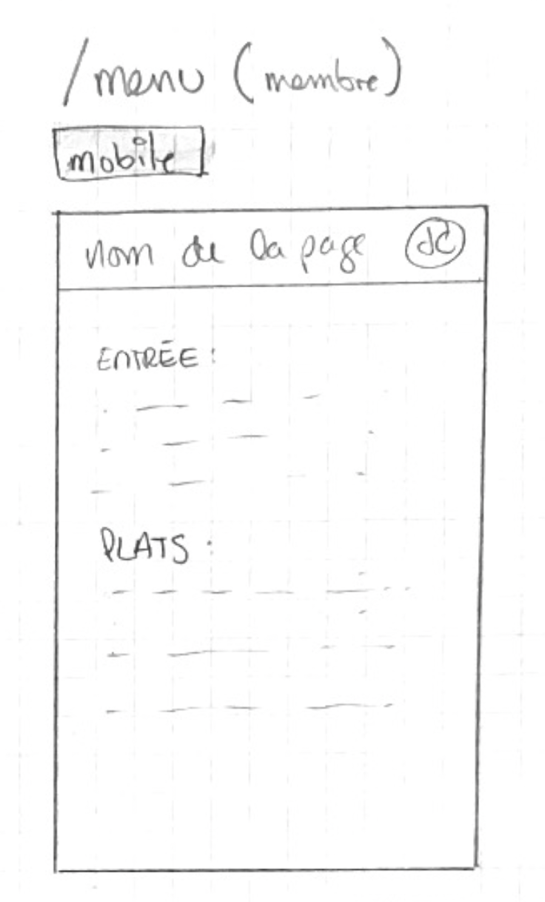 /menu (membre)
mobile
nom de la page JC
ENTRÉE :
PLATS :